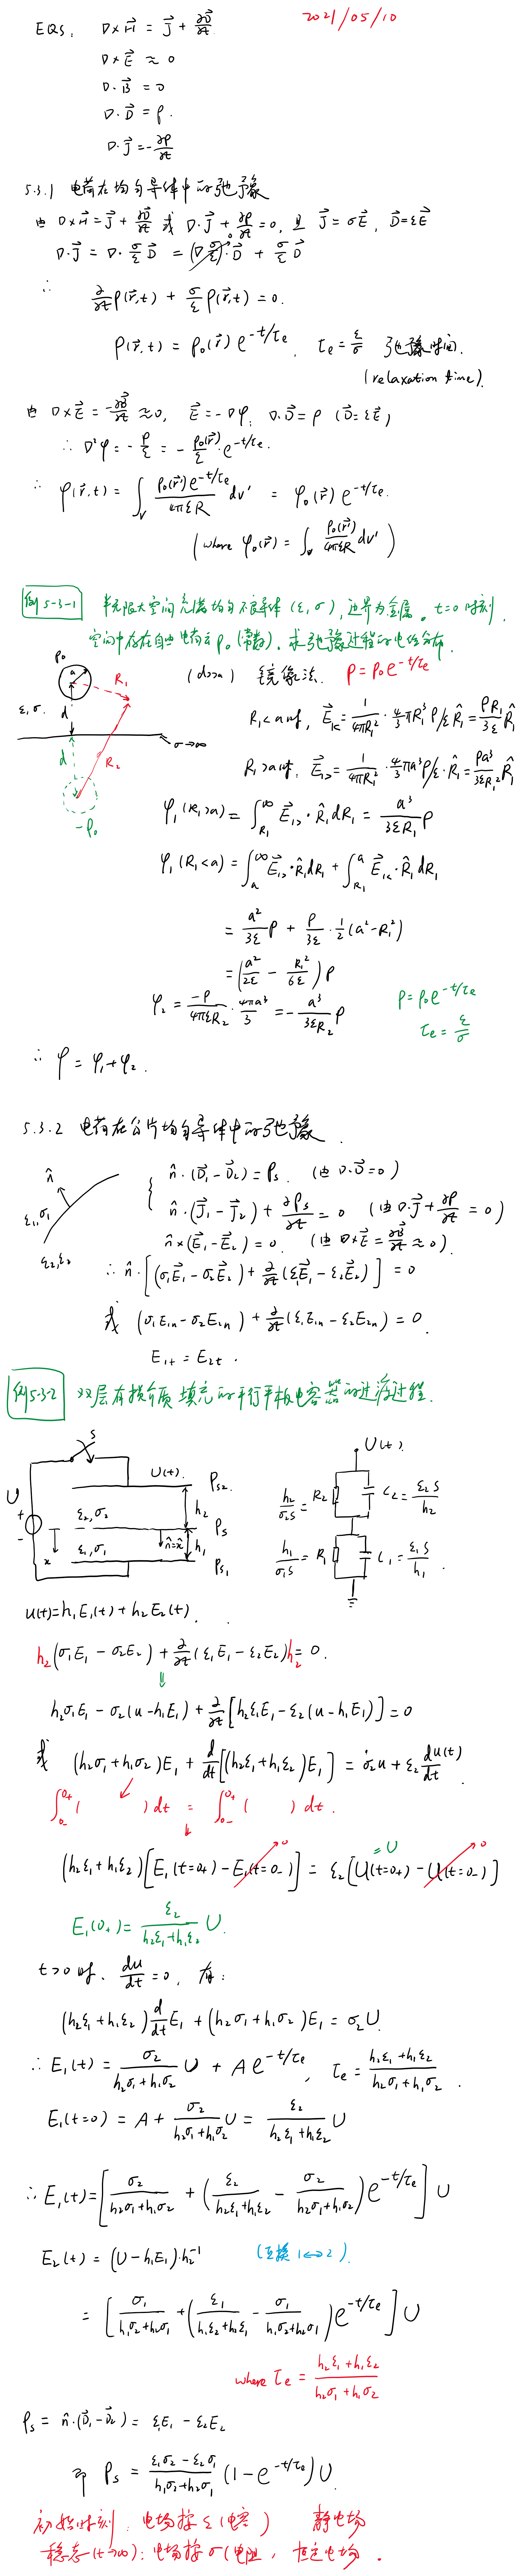 2021/05/10
EQS, ∇×H⃗ = J⃗ + ∂D⃗/∂t
∇×E⃗ ≈ 0
∇·B⃗ = 0
∇·D⃗ = ρ.
∇·J⃗ = -∂ρ/∂t
5.3.1 电荷在均匀导体中的弛豫
由 ∇×H⃗ = J⃗ + ∂D⃗/∂t 或 ∇·J⃗ + ∂ρ/∂t = 0, 且 J⃗ = σE⃗, D⃗ = εE⃗
∇·J⃗ = ∇·(σ/ε)D⃗ = (∇σ/ε)·D⃗ + (σ/ε)∇·D⃗
∴ ∂/∂t ρ(r⃗,t) + (σ/ε)ρ(r⃗,t) = 0.
ρ(r⃗,t) = ρ₀(r⃗) e^{-t/τe}, τe = ε/σ 弛豫时间.
(relaxation time).
由 ∇×E⃗ = -∂B⃗/∂t ≈ 0, E⃗ = -∇φ, ∇·D⃗ = ρ (D⃗ = εE⃗)
∴ ∇²φ = -ρ/ε = -(ρ₀(r⃗)/ε)·e^{-t/τe}.
∴ φ(r⃗,t) = ∫_V ρ₀(r⃗')e^{-t/τe}/(4πεR) dv' = φ₀(r⃗) e^{-t/τe}.
(where φ₀(r⃗) = ∫_V ρ₀(r⃗')/(4πεR) dv')
例5-3-1 半无限大空间充满均匀不良导体 (ε, σ), 边界为金属。t=0时刻,
空间中存在自由电荷云 ρ₀ (常数). 求弛豫过程的电位分布.
(d>>a) 镜像法. ρ = ρ₀e^{-t/τe}
ρ₀ a R₁
ε, σ. d
σ→∞
d R₂
-ρ₀
R₁<a时, E⃗₁< = 1/(4πR₁²) · (4/3)πR₁³ ρ/ε R̂₁ = (ρR₁/3ε) R̂₁
R₁>a时, E⃗₁> = 1/(4πR₁²) · (4/3)πa³ρ/ε · R̂₁ = (ρa³/3εR₁²) R̂₁
φ₁(R₁>a) = ∫_{R₁}^∞ E⃗₁>·R̂₁dR₁ = (a³/3εR₁)ρ
φ₁(R₁<a) = ∫_a^∞ E⃗₁>·R̂₁dR₁ + ∫_{R₁}^a E⃗₁<·R̂₁dR₁
= (a²/3ε)ρ + (ρ/3ε)·(1/2)(a²-R₁²)
= (a²/2ε - R₁²/6ε)ρ
φ₂ = -ρ/(4πεR₂) · 4πa³/3 = -(a³/3εR₂)ρ
ρ = ρ₀e^{-t/τe}
τe = ε/σ
∴ φ = φ₁+φ₂.
5.3.2 电荷在分片均匀导体中的弛豫.
n̂ ε₁,σ₁
ε₂,ε₂
n̂·(D⃗₁-D⃗₂) = ρs. (由 ∇·D⃗=0)
n̂·(J⃗₁-J⃗₂) + ∂ρs/∂t = 0 (由 ∇·J⃗+∂ρ/∂t = 0)
n̂×(E⃗₁-E⃗₂) = 0. (由 ∇×E⃗ = ∂B⃗/∂t ≈ 0).
∴ n̂·[(σ₁E⃗₁-σ₂E⃗₂) + ∂/∂t(ε₁E⃗₁-ε₂E⃗₂)] = 0
或 (σ₁E₁n-σ₂E₂n) + ∂/∂t(ε₁E₁n-ε₂E₂n) = 0.
E₁t = E₂t.
例5-3-2 双层有损介质填充的平行平板电容器的过渡过程.
S
U + -
U(t). ρs₂
ε₂,σ₂ h₂
ρs
x ε₁,σ₁ n̂=x̂ h₁
ρs₁
U(t).
h₂/(σ₂S) = R₂ C₂ = ε₂S/h₂
h₁/(σ₁S) = R₁ C₁ = ε₁S/h₁
u(t) = h₁E₁(t) + h₂E₂(t).
h₂(σ₁E₁ - σ₂E₂) + ∂/∂t(ε₁E₁-ε₂E₂)h₂ = 0.
⇓
h₂σ₁E₁ - σ₂(u-h₁E₁) + ∂/∂t[h₂ε₁E₁-ε₂(u-h₁E₁)] = 0
或 (h₂σ₁+h₁σ₂)E₁ + d/dt[(h₂ε₁+h₁ε₂)E₁] = σ₂u + ε₂ du(t)/dt.
∫_{0-}^{0+}( )dt = ∫_{0-}^{0+}( )dt.
(h₂ε₁+h₁ε₂)[E₁(t=0+)-E₁(t=0-)] = ε₂[U(t=0+)-U(t=0-)]
→0 =U →0
E₁(0+) = ε₂/(h₂ε₁+h₁ε₂) U.
t>0时. du/dt = 0, 有:
(h₂ε₁+h₁ε₂) d/dt E₁ + (h₂σ₁+h₁σ₂)E₁ = σ₂U.
∴ E₁(t) = σ₂/(h₂σ₁+h₁σ₂) U + Ae^{-t/τe}, τe = (h₂ε₁+h₁ε₂)/(h₂σ₁+h₁σ₂).
E₁(t=0) = A + σ₂/(h₂σ₁+h₁σ₂) U = ε₂/(h₂ε₁+h₁ε₂) U
∴ E₁(t) = [σ₂/(h₂σ₁+h₁σ₂) + (ε₂/(h₂ε₁+h₁ε₂) - σ₂/(h₂σ₁+h₁σ₂))e^{-t/τe}] U
E₂(t) = (U-h₁E₁)·h₂⁻¹ (互换 1↔2).
= [σ₁/(h₁σ₂+h₂σ₁) + (ε₁/(h₁ε₂+h₂ε₁) - σ₁/(h₁σ₂+h₂σ₁))e^{-t/τe}] U
where τe = (h₂ε₁+h₁ε₂)/(h₂σ₁+h₁σ₂)
ρs = n̂·(D⃗₁-D⃗₂) = ε₁E₁ - ε₂E₂
可 ρs = (ε₁σ₂-ε₂σ₁)/(h₁σ₂+h₂σ₁) (1-e^{-t/τe}) U.
初始时刻: 电场按ε(电容) 静电场
稳态(t→∞): 电场按σ(电阻, 恒定电场.